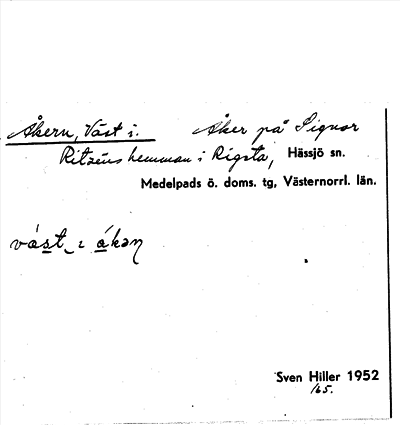 Åkern, Väst i. Åker på Signor
Ritzéns hemman i Rigsta, Hässjö sn.
Medelpads ö. doms. tg, Västernorrl. län.
väst i åkən
Sven Hiller 1952
165.